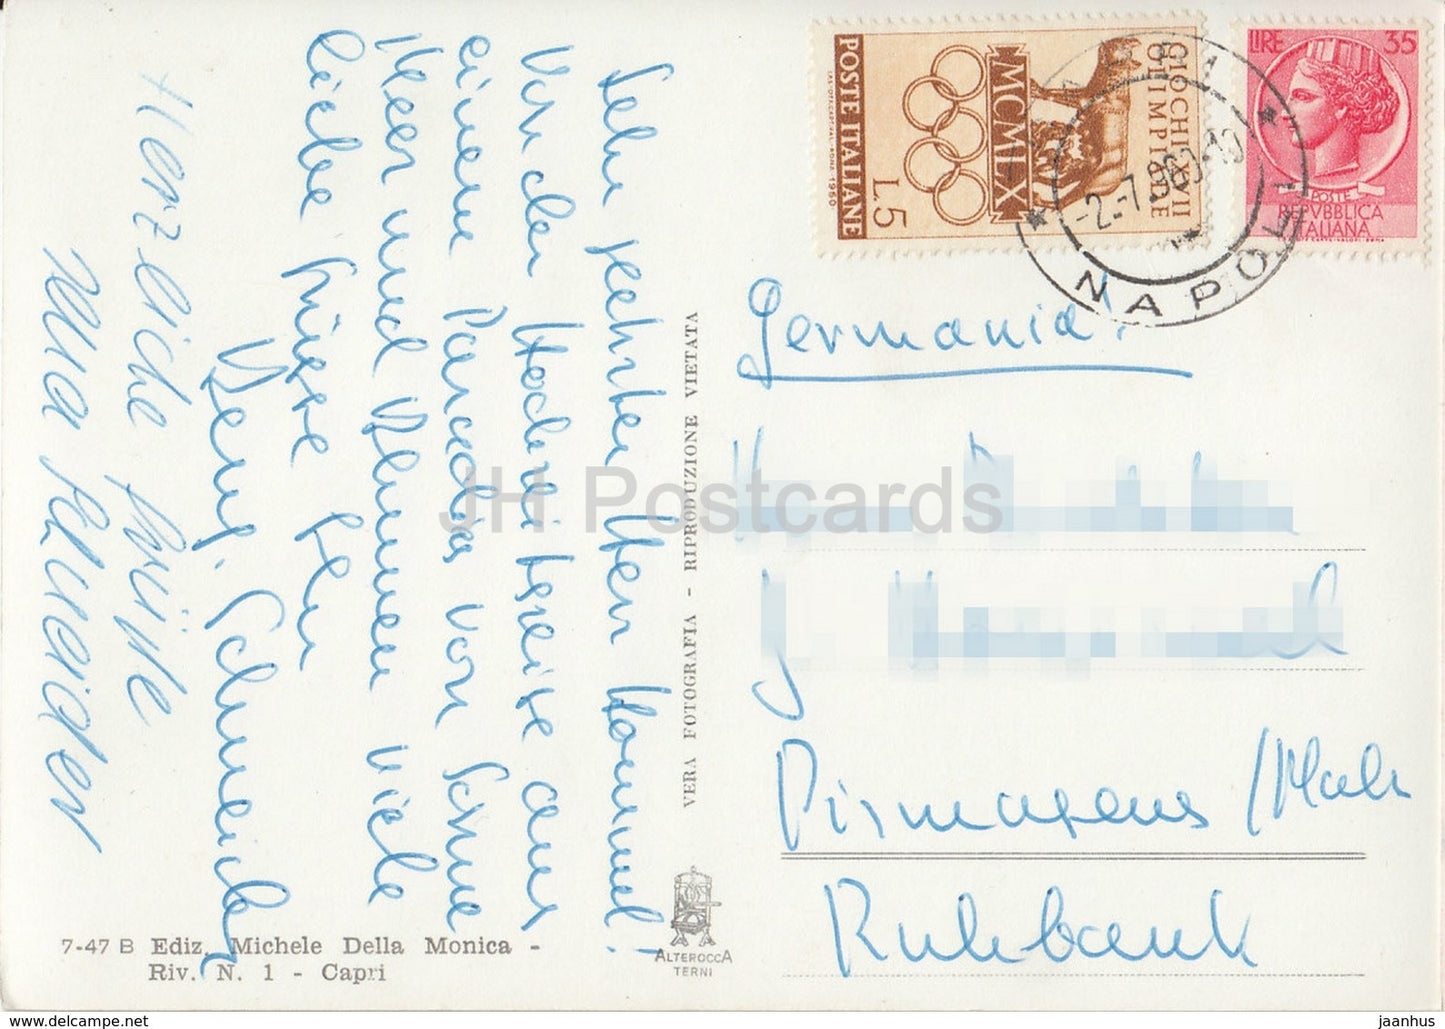 Sehr geehrter Herr Hommel!
Von der Hochzeitsreise aus
einem Paradies von Sonne
Meer und Blumen viele
liebe Grüsse Ihr
Schneider
Herzliche Grüße
Schneider
7-47 B Ediz. Michele Della Monica -
Riv. N. 1 - Capri
VERA FOTOGRAFIA - RIPRODUZIONE VIETATA
ALTEROCCA
TERNI
POSTE ITALIANE
I.P.S.-OFF. CARTE VAL.-ROMA 1960
L.5
MCMLX
GIOCHI XVII
OLIMPIADE
LIRE 35
POSTE
REPVBBLICA
ITALIANA
-2.-7.1960-10
NAPOLI
Germania!
Pirmasens /Pfalz
Ruhbank
JH Postcards
www.delcampe.net
jaanhus